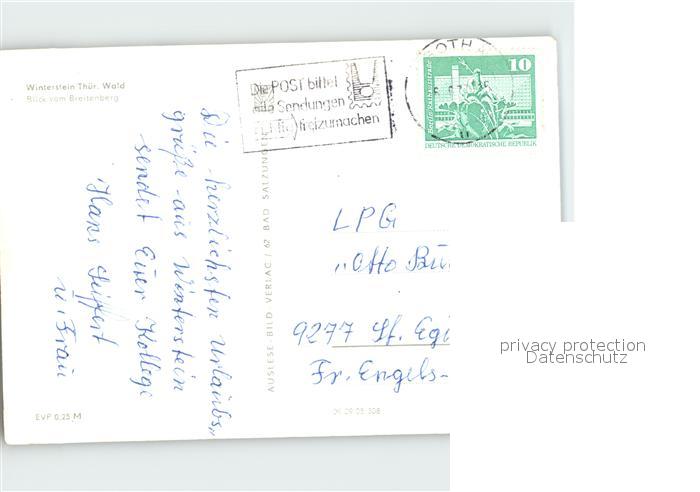 Winterstein Thür. Wald
Blick vom Breitenberg
Die herzlichsten Urlaubs„
grüße aus Winterstein
sendet Euer Kollege
Hans Seiffert
u. Frau
EVP 0,25 M
AUSLESE-BILD VERLAG / 62 BAD SALZUNGEN
09 09 05 308
Die POST bittet
alle Sendungen
freizumachen
10
Berlin, Rathausstraße
DEUTSCHE DEMOKRATISCHE REPUBLIK
LPG
„Otto
9277 
Fr. Engels-
privacy protection
Datenschutz